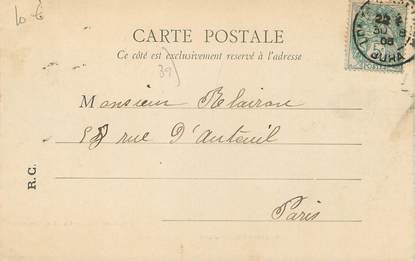 10 -€
CARTE POSTALE
Ce côté est exclusivement reservé à l'adresse
(39)
Monsieur Relairon
rue D'auteuil
Paris
R. C.
JURA